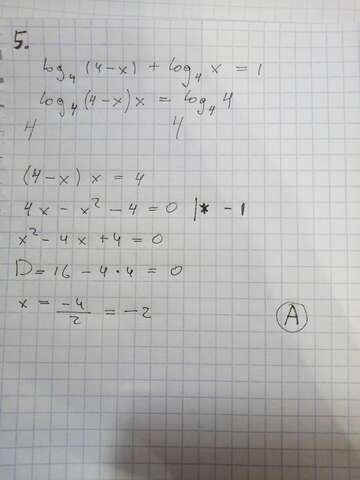 5.
log₄ (4-x) + log₄ x = 1
log₄ (4-x) x = log₄ 4
4 4
(4-x) x = 4
4x - x² - 4 = 0 |* - 1
x² - 4x + 4 = 0
D = 16 - 4 • 4 = 0
x = -4/2 = -2
A